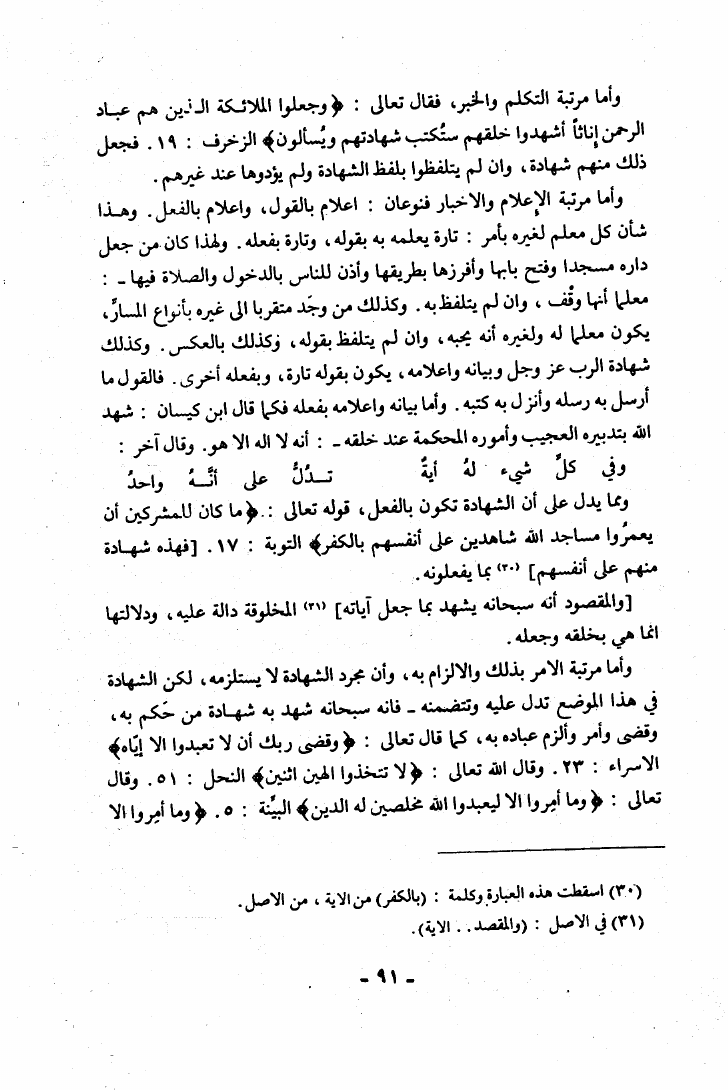 وأما مرتبة التكلم والخبر، فقال تعالى : ﴿وجعلوا الملائكة الذين هم عباد
الرحمن إناثاً أشهدوا خلقهم ستُكتب شهادتهم ويُسألون﴾ الزخرف : ١٩. فجعل
ذلك منهم شهادة، وان لم يتلفظوا بلفظ الشهادة ولم يؤدوها عند غيرهم.
وأما مرتبة الإعلام والاخبار فنوعان : اعلام بالقول، واعلام بالفعل. وهذا
شأن كل معلم لغيره بأمر : تارة يعلمه به بقوله، وتارة بفعله. ولهذا كان من جعل
داره مسجدا وفتح بابها وأفرزها بطريقها وأذن للناس بالدخول والصلاة فيها - :
معلما أنها وقْف، وان لم يتلفظ به. وكذلك من وجَد متقربا الى غيره بأنواع المسارِّ،
يكون معلما له ولغيره أنه يحبه، وان لم يتلفظ بقوله، وكذلك بالعكس. وكذلك
شهادة الرب عز وجل وبيانه واعلامه، يكون بقوله تارة، وبفعله أخرى. فالقول ما
أرسل به رسله وأنزل به كتبه. وأما بيانه واعلامه بفعله فكما قال ابن كيسان : شهد
الله بتدبيره العجيب وأموره المحكمة عند خلقه - : أنه لا اله الا هو. وقال آخر :
وفي كلِّ شيء لهُ أيةٌ تدُلُّ على أنَّهُ واحدُ
ومما يدل على أن الشهادة تكون بالفعل، قوله تعالى : ﴿ما كان للمشركين أن
يعمرُوا مساجد الله شاهدين على أنفسهم بالكفر﴾ التوبة : ١٧. [فهذه شهادة
منهم على أنفسهم] (٣٠) بما يفعلونه.
[والمقصود أنه سبحانه يشهد بما جعل آياته] (٣١) المخلوقة دالة عليه، ودلالتها
انما هي بخلقه وجعله.
وأما مرتبة الامر بذلك والالزام به، وأن مجرد الشهادة لا يستلزمه، لكن الشهادة
في هذا الموضع تدل عليه وتتضمنه - فانه سبحانه شهد به شهادة من حَكم به،
وقضى وأمر وألزم عباده به، كما قال تعالى : ﴿وقضى ربك أن لا تعبدوا الا إيّاه﴾
الاسراء : ٢٣. وقال الله تعالى : ﴿لا تتخذوا الهين اثنين﴾ النحل : ٥١. وقال
تعالى : ﴿وما أمِروا الا ليعبدوا الله مخلصين له الدين﴾ البيِّنة : ٥. ﴿وما أمِروا الا
(٣٠) اسقطت هذه العبارة وكلمة : (بالكفر) من الاية، من الاصل.
(٣١) في الاصل : (والمقصد. . الاية).
- ٩١ -